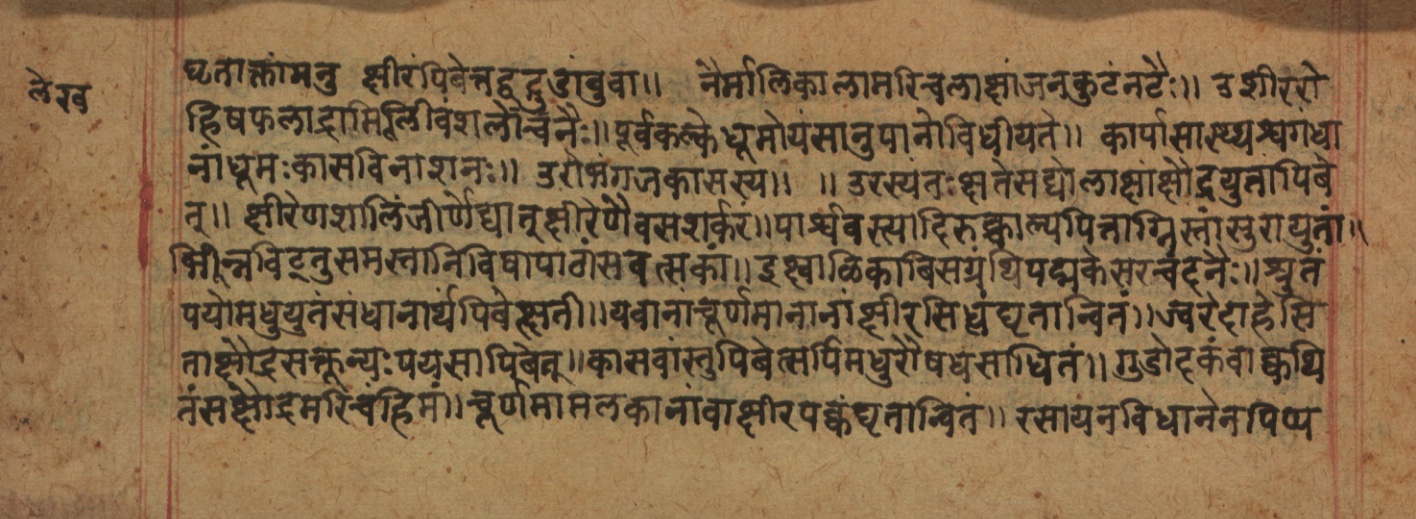 लेखब
घृताक्तांमनु क्षीरंपिबेन्नद्वद्गुडांबुवा॥ नैर्मालिकालामरिचलाक्षांजनकुटंनटैः॥ उशीररो
हिषफलाद्रामिूलीवंशलोचनैः॥ पूर्वकल्केधूमोयंसानुपानोविधीयते॥ कार्पासास्थ्यश्वगंधा
नांधूमःकासविनाशनः॥ उरोभंगजकासस्य॥ ॥ उरस्यंतःक्षतेसद्योलाक्षांक्षौद्रयुतांपिबे
त्॥ क्षीरेणशालिंजीर्णेद्यात्क्षीरेणैवसशर्करं॥ पार्श्वबस्त्यादिरुक्चाल्पपित्ताग्निस्तांसुरायुतां॥
भिन्नविट्तुसमस्तातिविषापाठांसवत्सकां॥ इक्ष्वालिकाबिसग्रंथिपद्मकेसरचंदनैः॥ शृतं
पयोमधुयुतंसंधानार्थंपिबेत्क्षती॥ यवानाचूर्णमानानांक्षीरसिध्धंघृतान्वितं॥ ज्वरेदाहेसि
ताक्षौद्रसक्तून्यःपयसापिबेत्॥ कासवांस्तुपिबेत्सर्पिमधुरौषधसाधितं॥ गुडोदकंवाक्वथि
तंसक्षौद्रमरिचंहिमं॥ चूर्णमामलकानांवाक्षीरपक्वंघृतान्वितं॥ रसायनविधानेनपिप्प